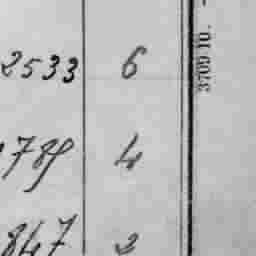 2533 6
789 4
847 2
3700 10.